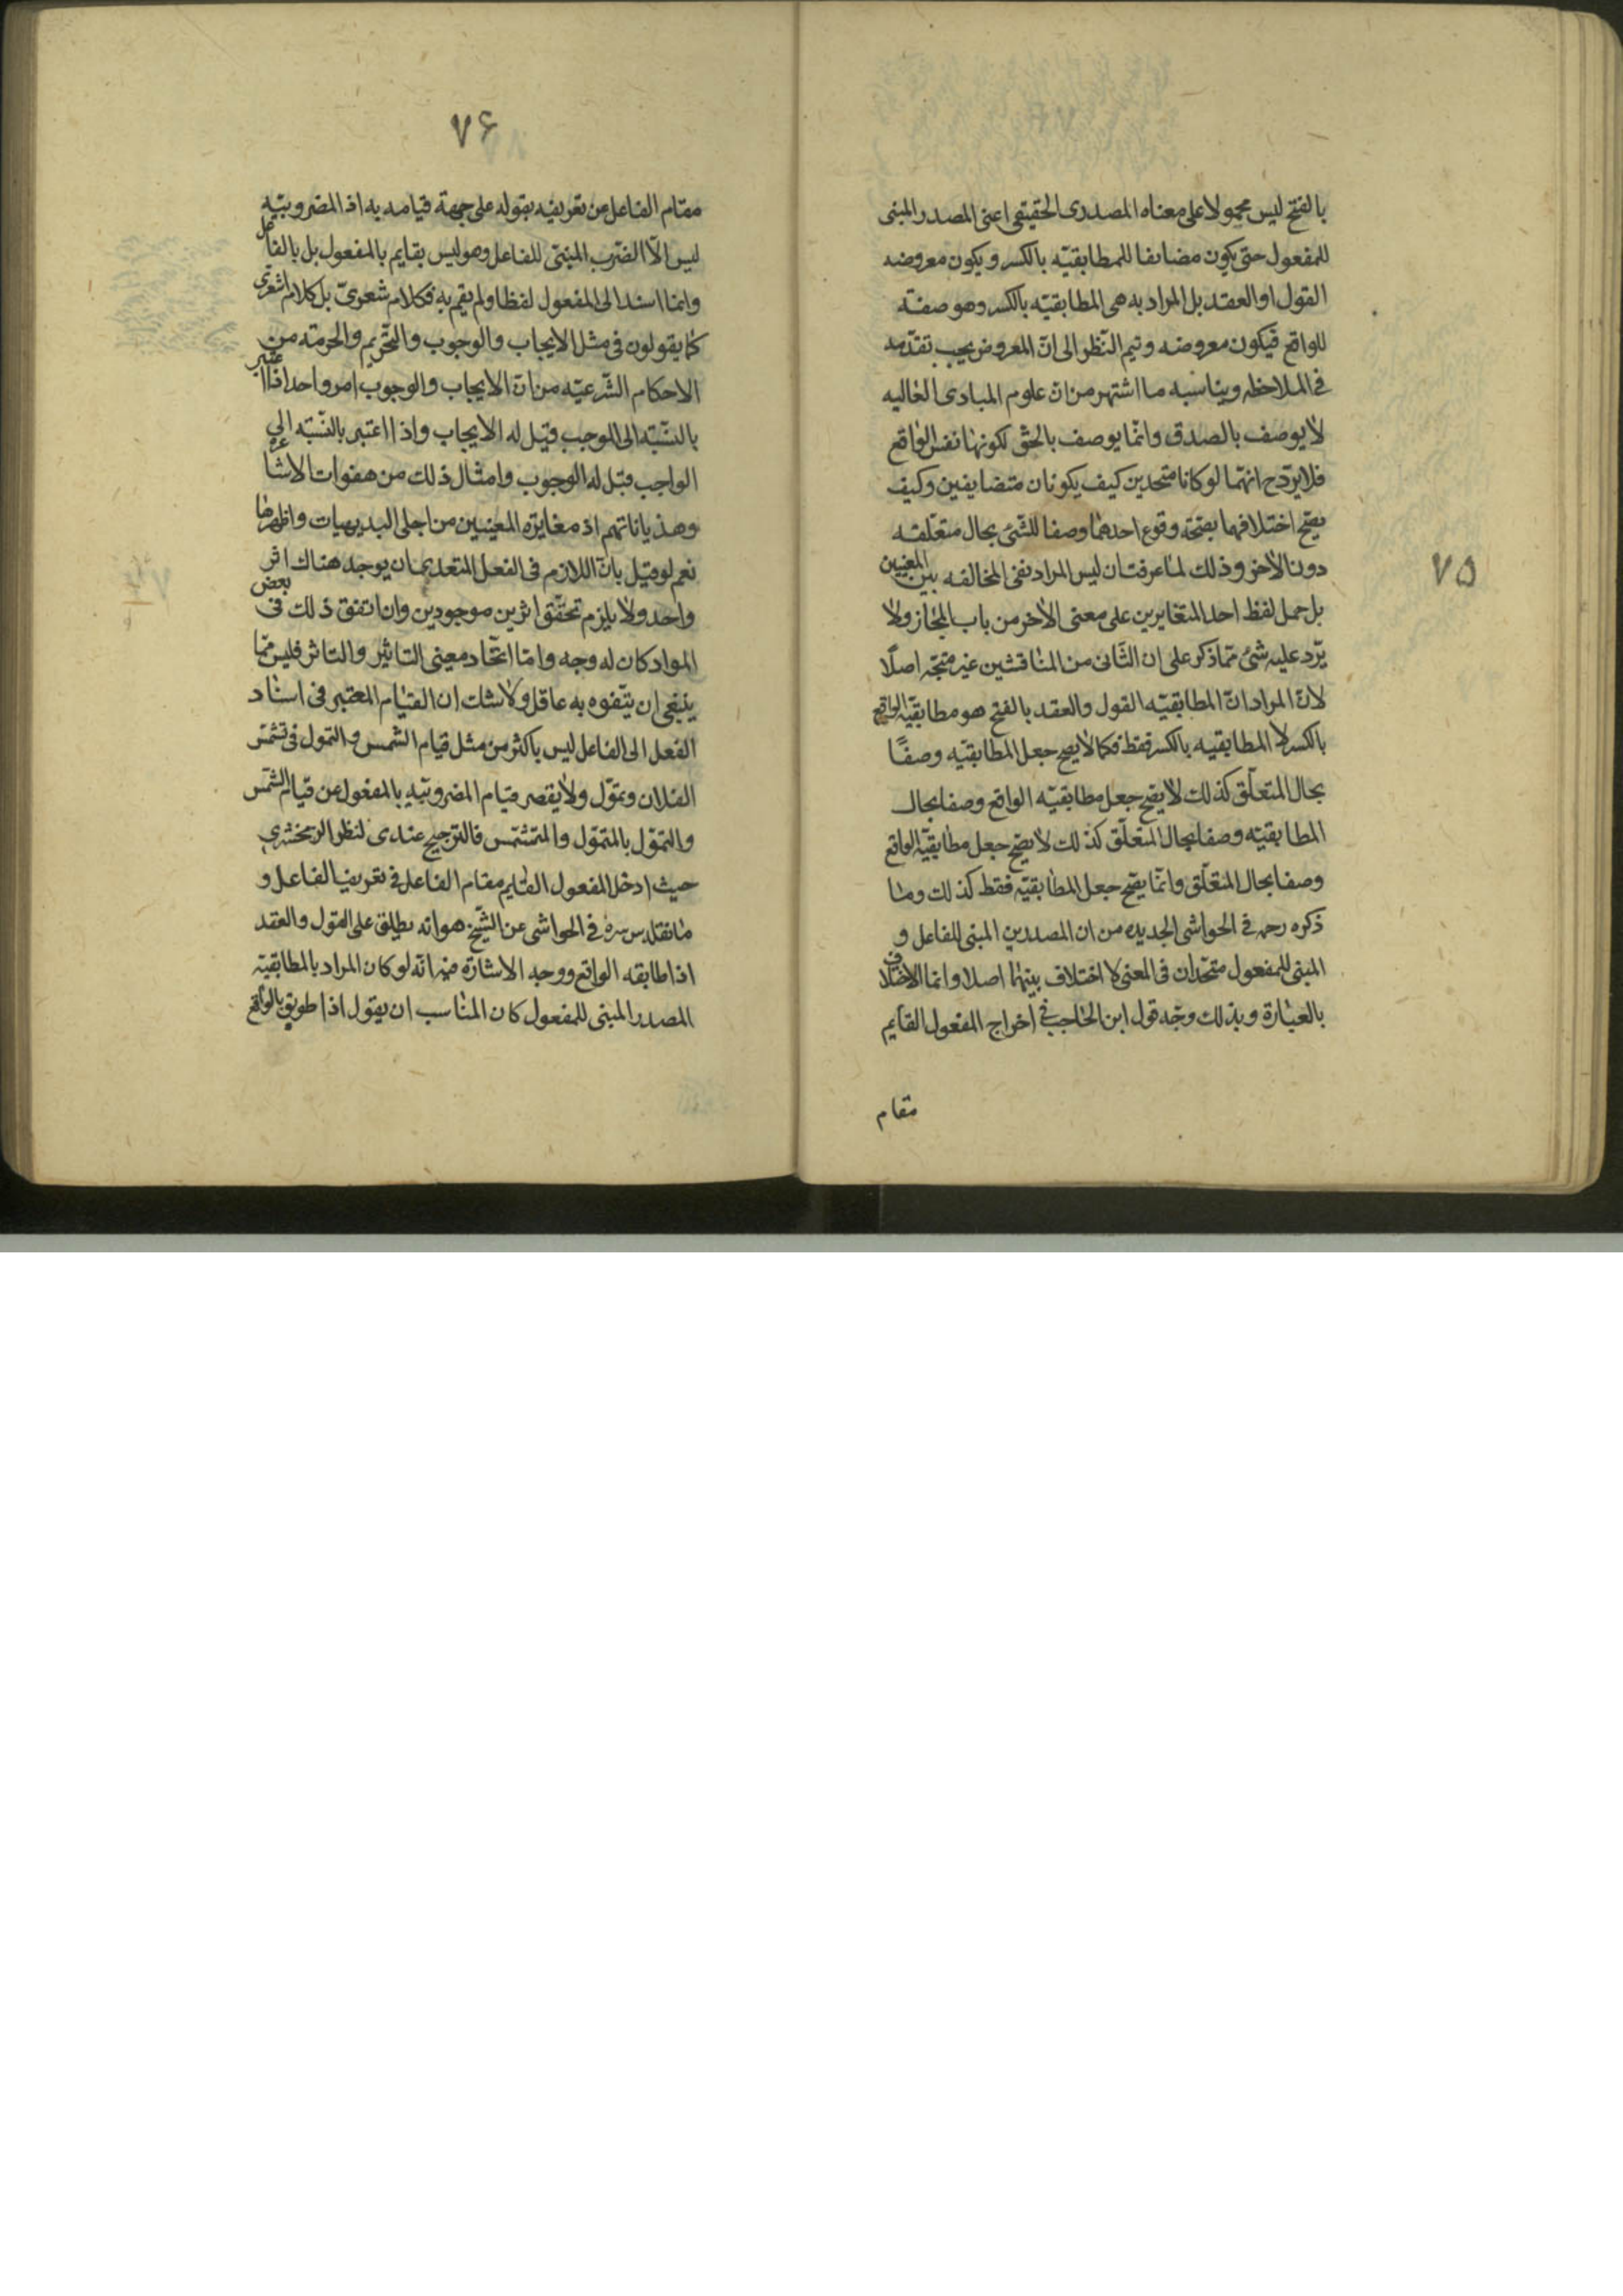 ۷۵
بالفتح ليس محمولا على معناه المصدرى الحقيقى اعنى المصدر المبنى
للمفعول حتى يكون مضايفا للمطابقيّه بالكسر و يكون معروضه
القول او العقد بل المراد به هى المطابقيّه بالكسر وهو صفته
للواقع فيكون معروضه و تيم النّظر الى انّ المعروض يجب تقدّمه
فى الملاحظه و يناسبه ما اشتهر من ان علوم المبادى العاليه
لا يوصف بالصدق وانّما يوصف بالحقّ لكونها نفس الواقع
فلا يرد ح انهّما لو كانا متحدين كيف يكونان متضايفين وكيف
يصح اختلافهما بصحّة وقوع احدهما وصفا للشّئ بحال متعلّقه
دون الاخر وذلك لما عرفت ان ليس المراد نفى المخالفه بين المعنيين
بل حمل لفظ احد المتغايرين على معنى الاخر من باب المجاز ولا
يرّد عليه شئ ممّا ذكر على ان الثّانى من المناقشين غير متجّه اصلًا
لانّ المراد انّ المطابقيّه القول والعقد بالفتح هو مطابقيّة الواقع
بالكسر لا المطابقيه بالكسر فقط فكما لا يصح جعل المطابقيّه وصفًا
بحال المتعلّق كذلك لا يصح جعل مطابقيّه الواقع وصفا بحال
المطابقيّه وصفا بحال المتعلّق كذلك لا يصحّ جعل مطابقيّة الواقع
وصفا بحال المتعلّق وانّما يصحّ جعل المطابقيّه فقط كذلك وما
ذكره رحمه فى الحواشى الجديده من ان المصدرين المبنى للفاعل و
المبنى للمفعول متحّدان فى المعنى لا اختلاف بينهما اصلا وانما الاختلاف
بالعبارة و بذلك وجّه قول ابن الحاجب فى اخراج المفعول القايم
مقام
۷۶
مقام الفاعل عن تعريفه بقوله على جهة قيامه به اذ المضروبيّه
ليس الّا الضّرب المبنىّ للفاعل وهو ليس بقايم بالمفعول بل بالفاعل
وانما اسند الى المفعول لفظا ولم يقم به فكلام شعرىّ بل كلام اشعرى
كما يقولون فى مثل الايجاب والوجوب والتّحريم والحرمته من
الاحكام الشّرعيّه من انّ الايجاب والوجوب امر واحد اذا اعتبر
بالنّسّبّه الى الموجب قيل له الايجاب واذا اعتبر بالنّسّبّه الى
الواجب قيل له الوجوب وامثال ذلك من هفوات الاشاعره
وهذياناتهم اذ مغايرة المعنيين من اجلى البديهيات واظهرها
نعم لو قيل بانّ اللازم فى الفعل المتعدى ان يوجد هناك اثر
واحد ولا يلزم تحقّق اثرين موجودين وان اتفق ذلك فى بعض
المواد كان له وجه وامّا اتحّاد معنى التاثير والتاثر فليس ممّا
ينبغى ان يتّفوه به عاقل ولا شك ان القيام المعتبر فى اسناد
الفعل الى الفاعل ليس باكثر من مثل قيام الشمس والتمول فى تشمّس
الفلان وتموّل ولا يقصر قيام المضروبيّه بالمفعول عن قيام الشّمس
والتموّل بالمتموّل والمتشمّس فالترجيح عندى لنظر الزمخشرى
حيث ادخل المفعول القايم مقام الفاعل فى تعريف الفاعل و
ما نقله س سره فى الحواشى عن الشّيخ هو انه يطلق على القول والعقد
اذا طابقه الواقع ووجه الاشارة منه انّه لو كان المراد بالمطابقيّة
المصدر المبنى للمفعول كان المناسب ان يقول اذا طوبق بالواقع